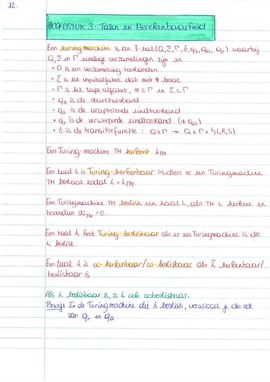 12.
HOOFDSTUK 3: Talen en Berekenbaarheid
Een turingmachine is een 7-tal (Q, Σ, Γ, δ, q_s, q_a, q_r) waarbij
Q, Σ en Γ eindige verzamelingen zijn en
• Q is een verzameling toestanden
• Σ is het inputalfabet dat niet # bevat
• Γ is het tape alfabet, # ∈ Γ en Σ ⊂ Γ
• q_s is de starttoestand
• q_a is de accepterende eindtoestand
• q_r is de verwerpende eindtoestand (≠ q_a)
• δ is de transitiefunctie : Q x Γ → Q x Γ x {L,R,S}
Een Turing-machine TM herkent L_TM
Een taal L is Turing-herkenbaar indien er een Turingmachine
TM bestaat zodat L = L_TM.
Een Turingmachine TM beslist een taal L, als TM L herkent en
bovendien ∞_TM = ∅.
Een taal L heet Turing-beslisbaar als er een Turingmachine is die
L beslist.
Een taal L is co-herkenbaar/co-beslisbaar als L̅ herkenbaar/
beslisbaar is
Als L beslisbaar is, is L ook cobeslisbaar.
Bewijs In de Turingmachine die L beslist, verwissel je de rol
van q_r en q_a.